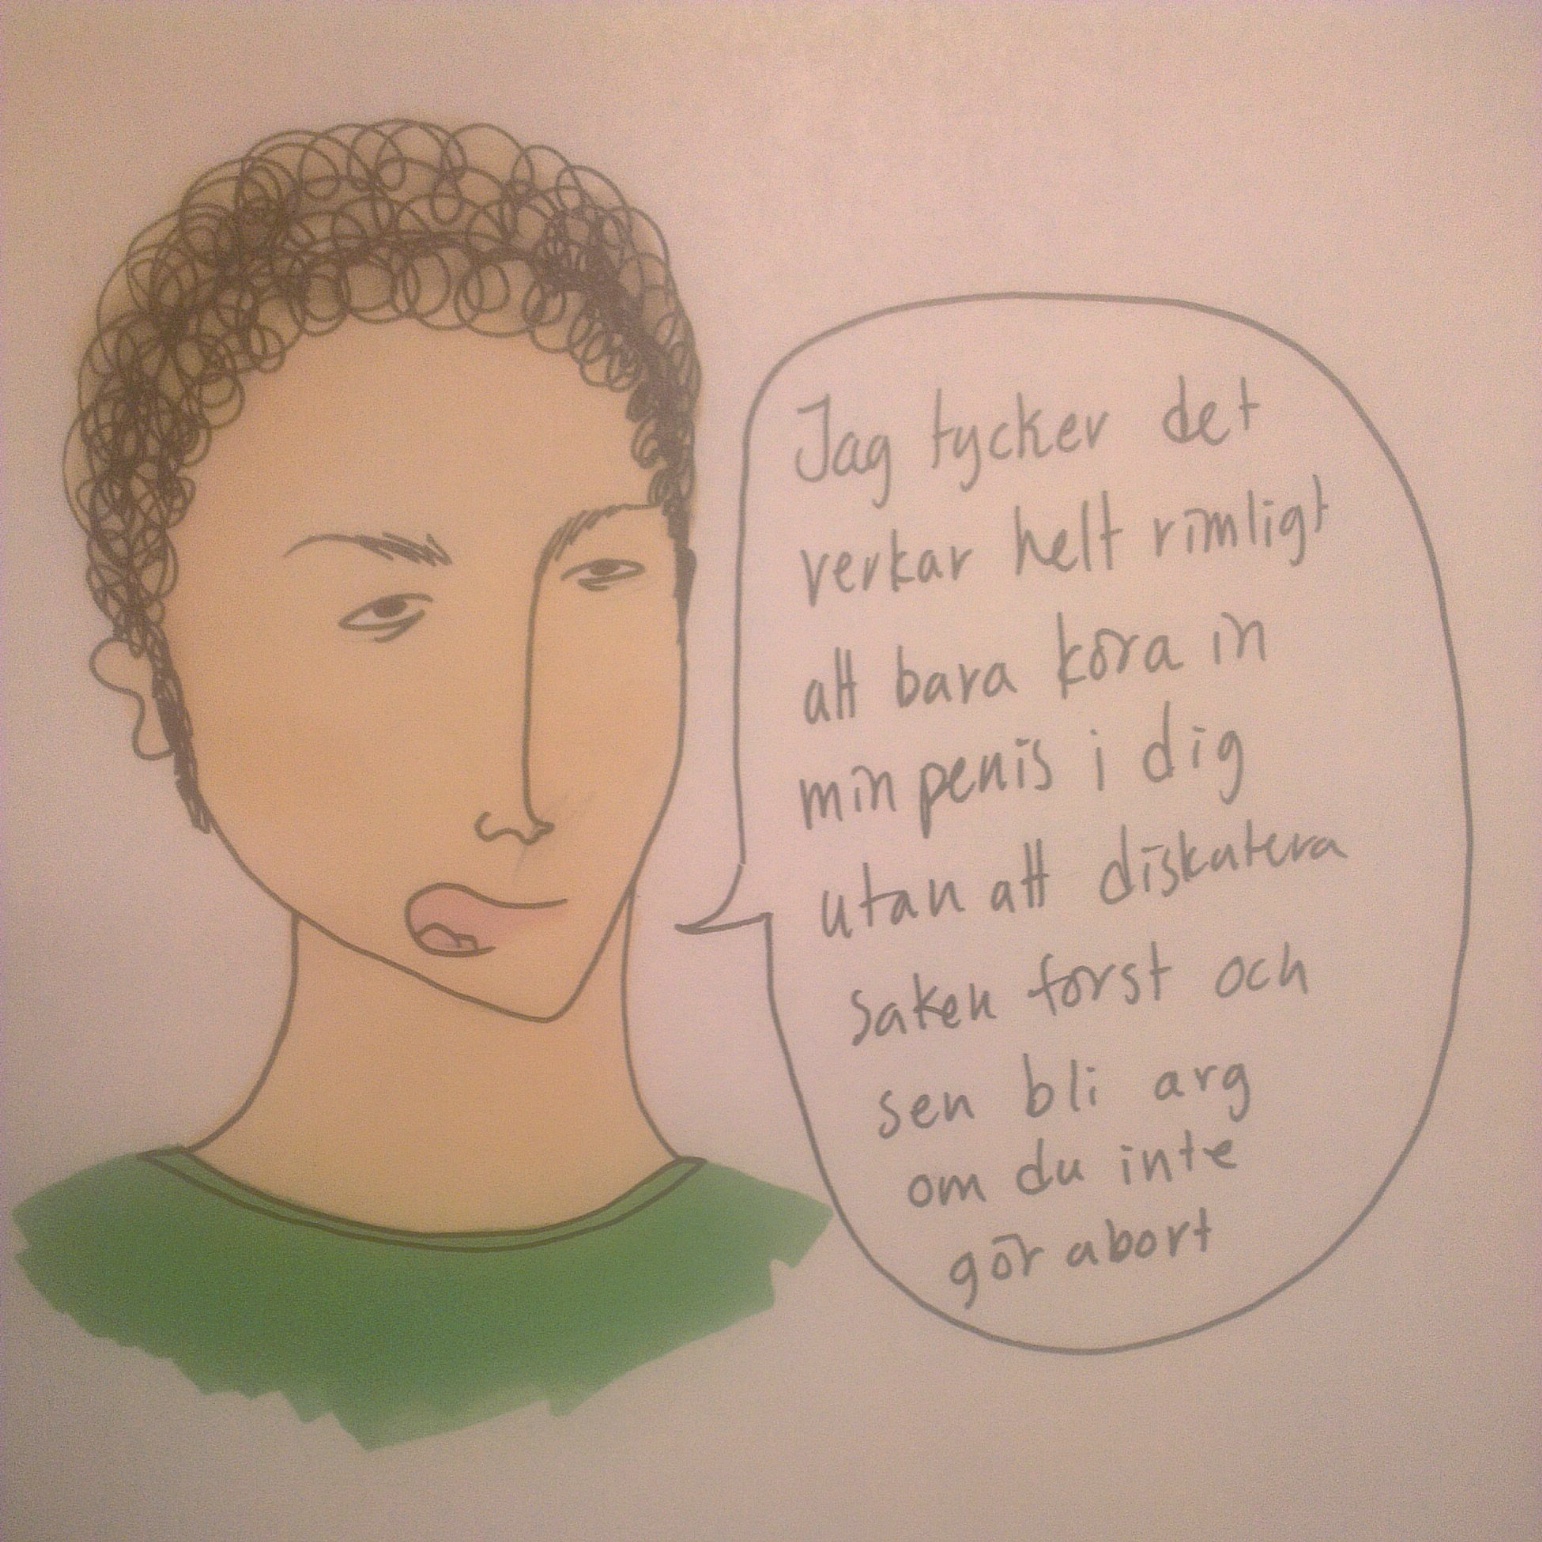 Jag tycker det
verkar helt rimligt
att bara köra in
min penis i dig
utan att diskutera
saken först och
sen bli arg
om du inte
gör abort